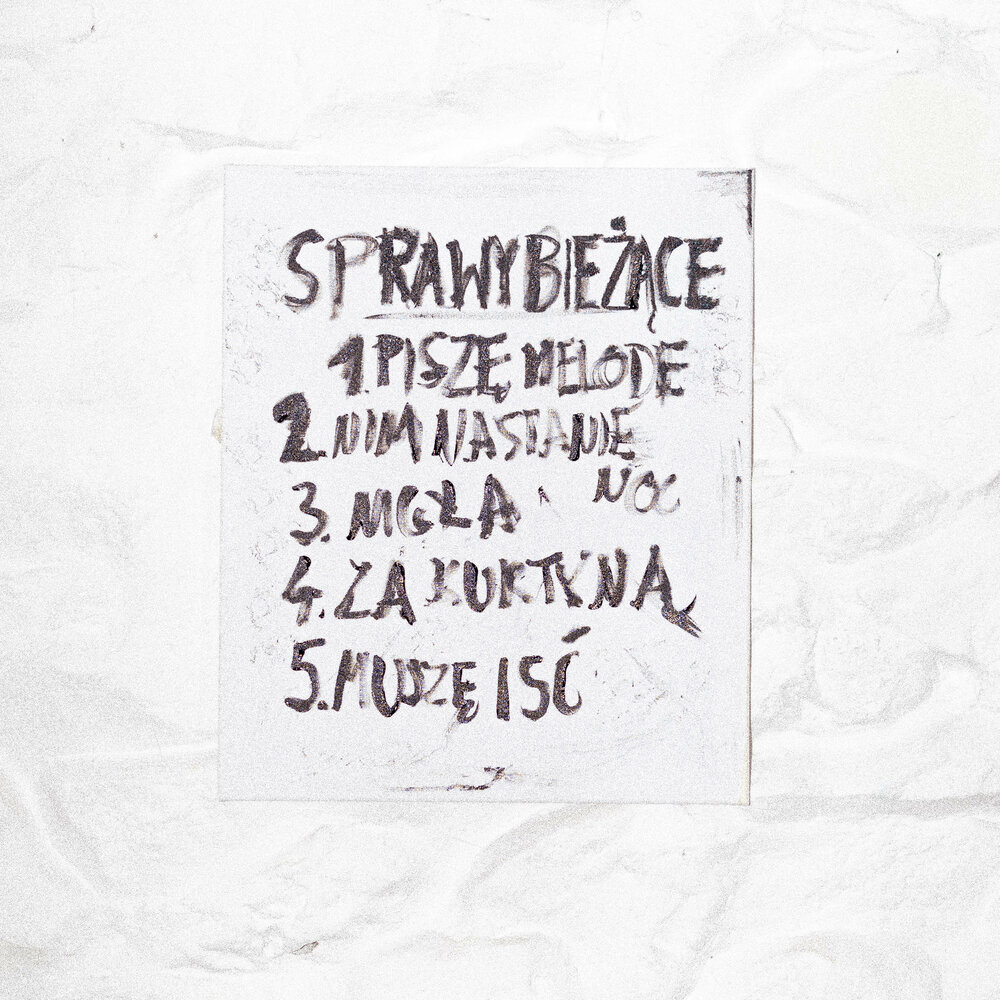 SPRAWY BIEŻĄCE
1. PISZĘ MELODE
2. NIM NASTANIE
NOC
3. MGŁA
4. ZA KURTYNĄ
5. MUSZĘ ISĆ